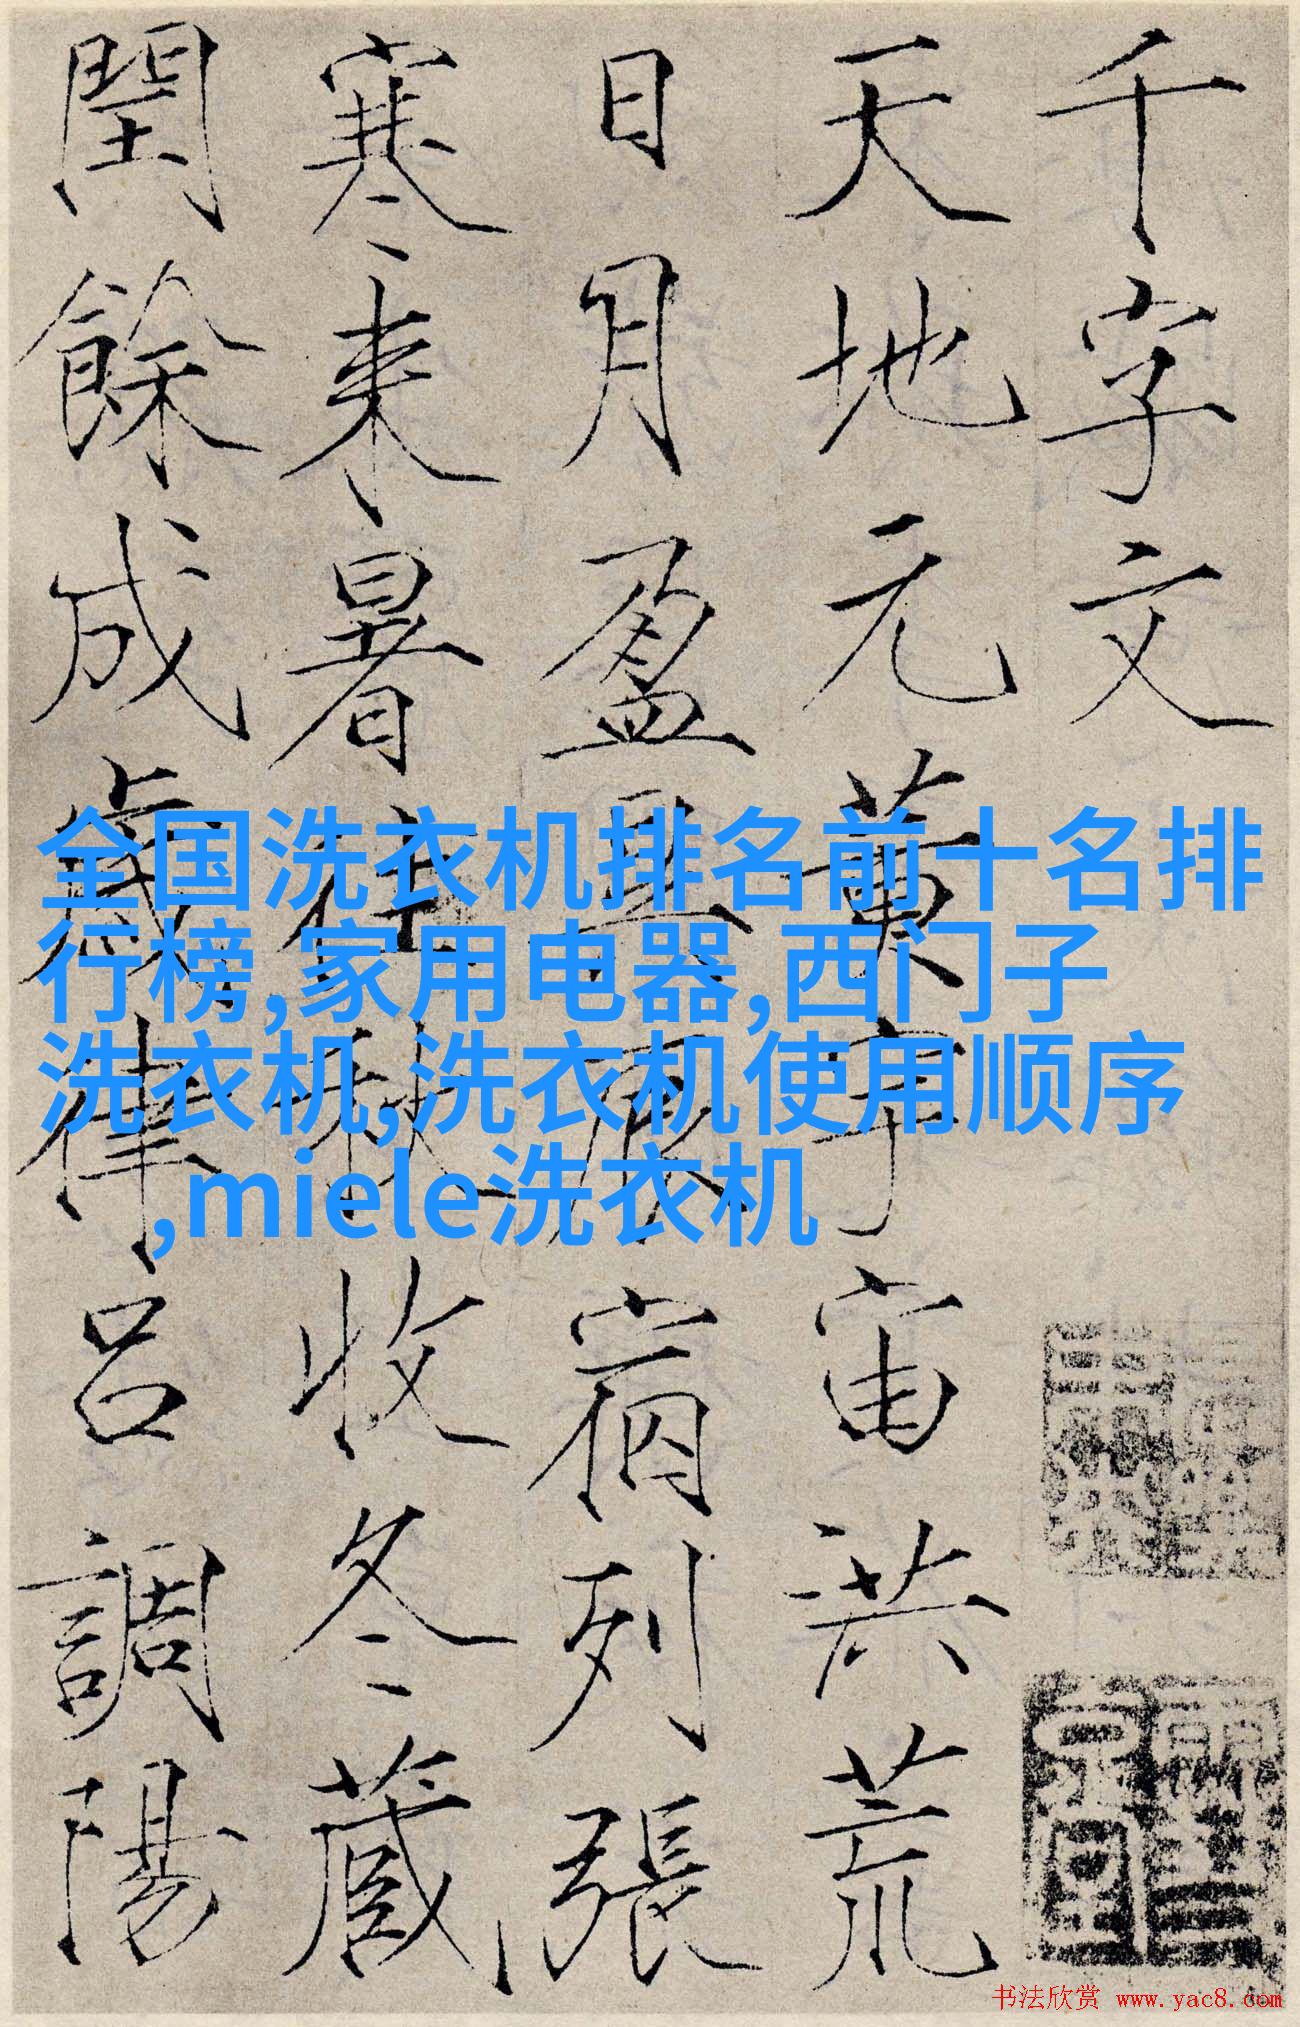 千字文
天地元黄宇宙洪荒
日月盈昃辰宿列張
寒来暑往秋收冬藏
閏餘成歲律吕調陽
全国洗衣机排名前十名排
行榜,家用电器,西门子
洗衣机,洗衣机使用顺序
,miele洗衣机
书法欣赏 www.yac8.com